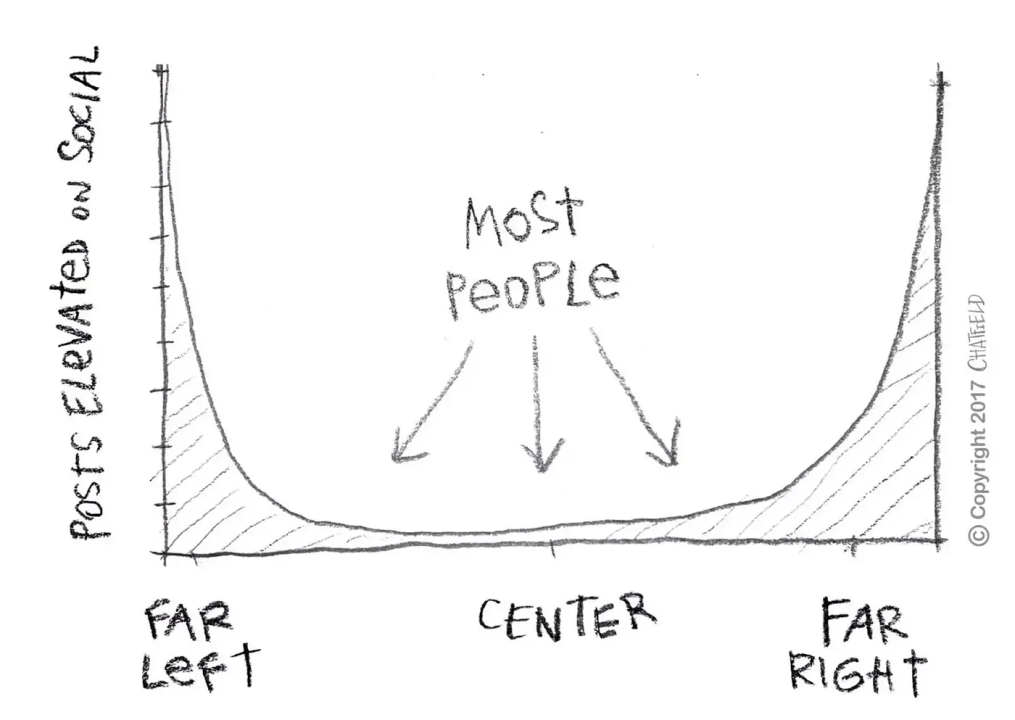 Posts Elevated on Social
Most
People
Far
Left
Center
Far
Right
© Copyright 2017 Chatfield